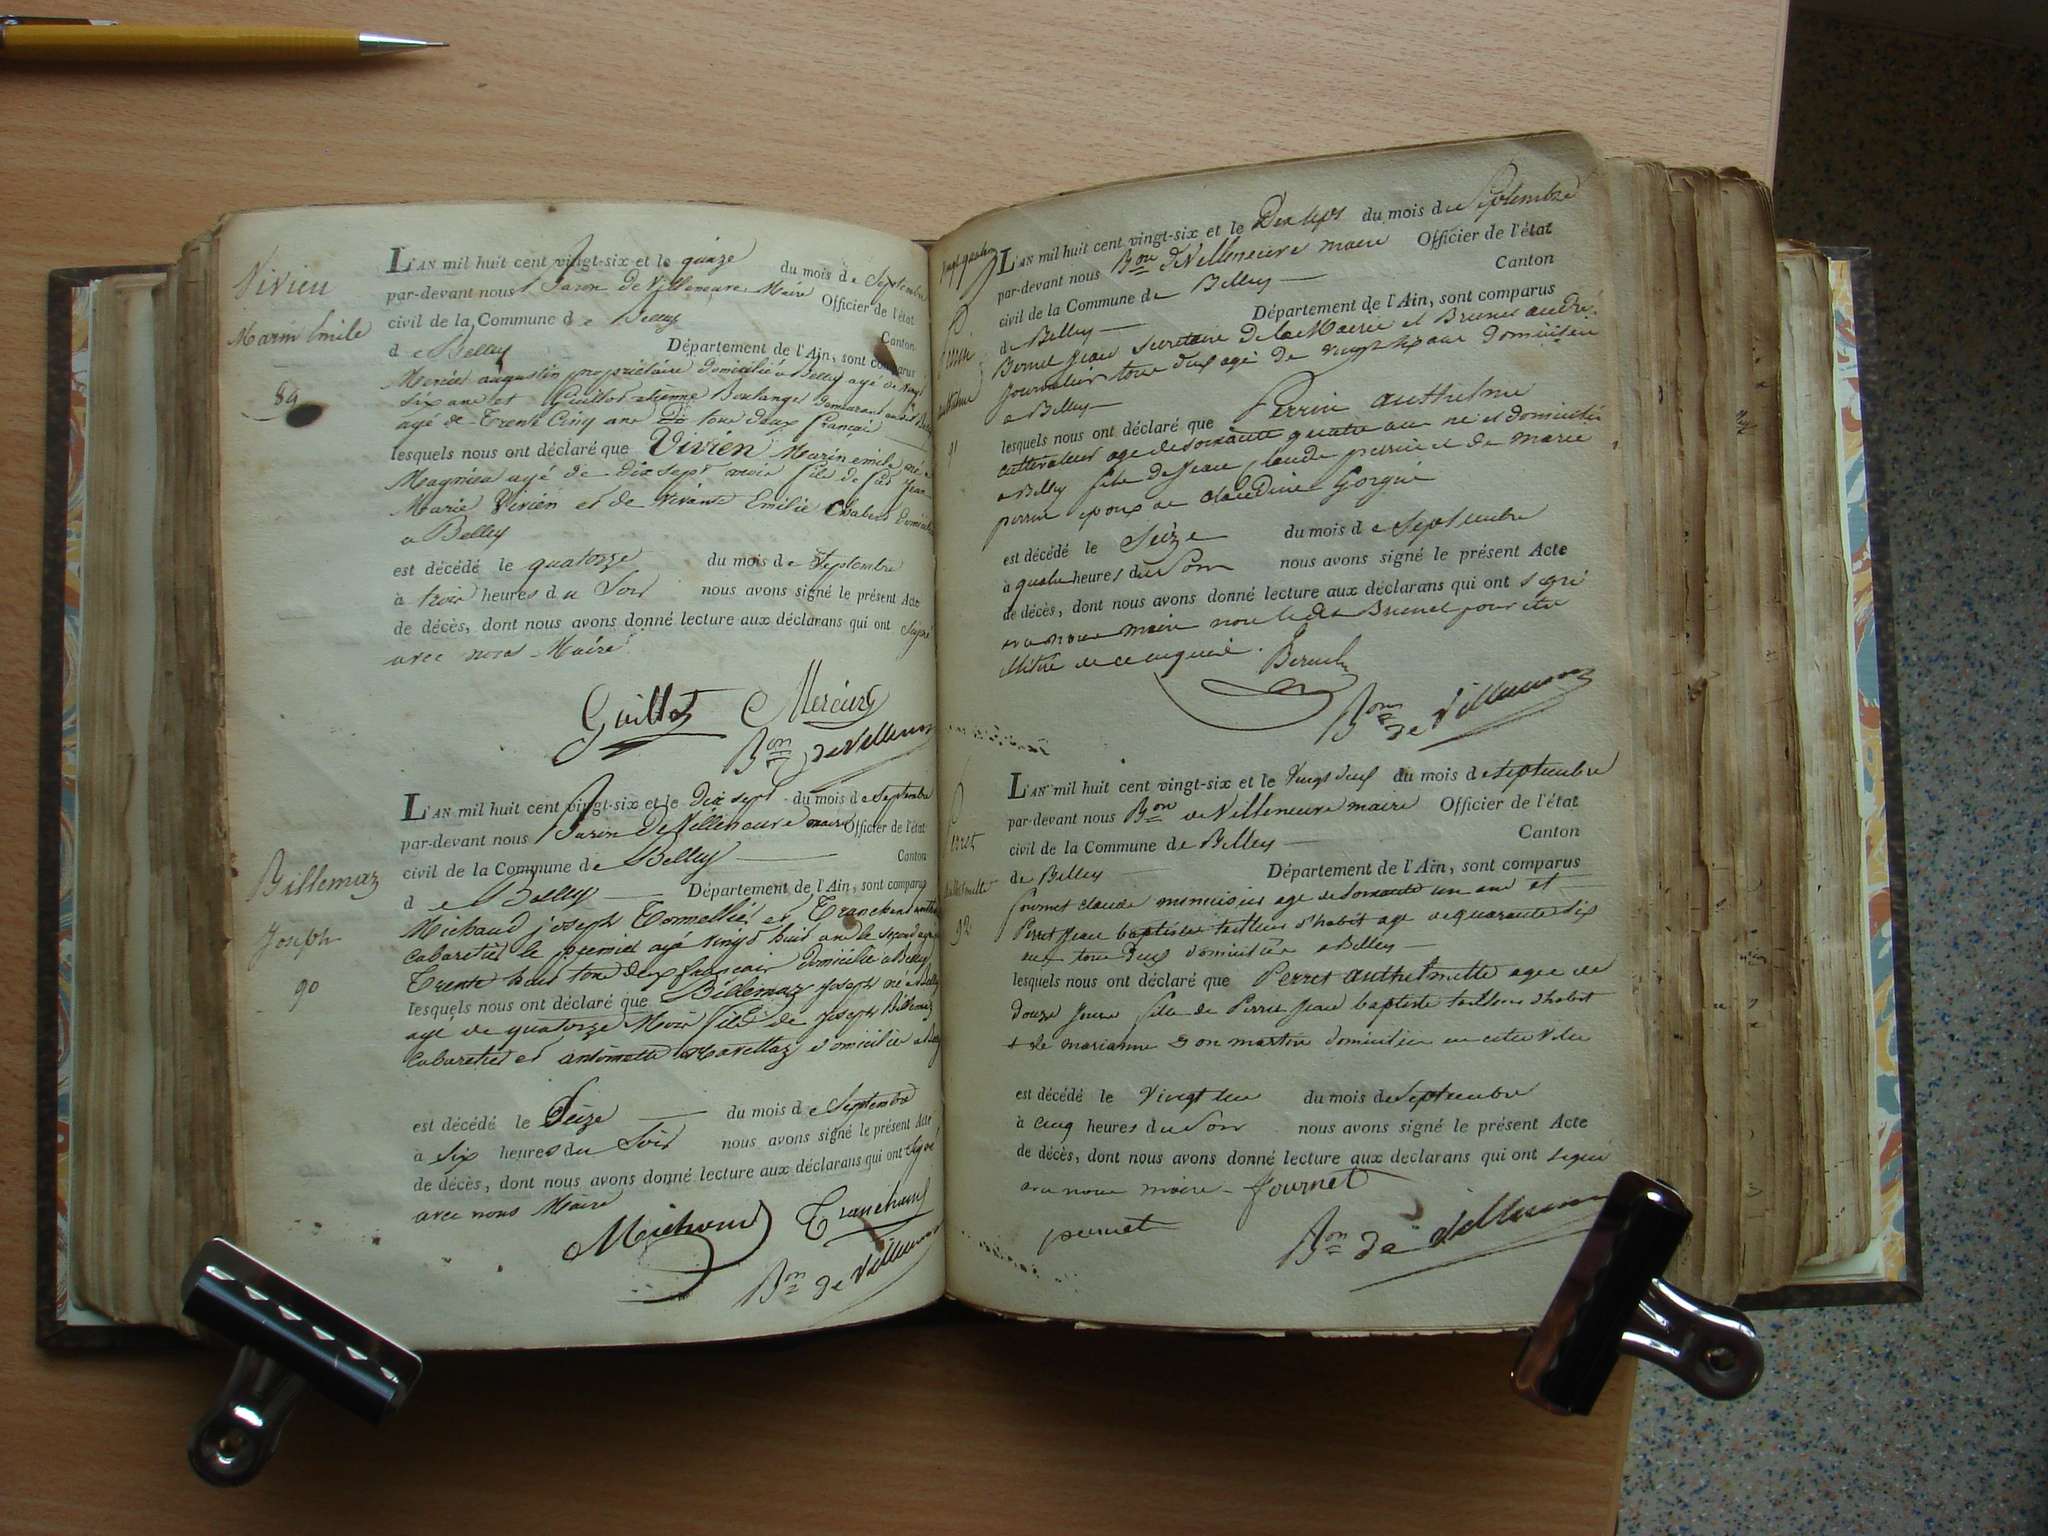 Vivien
Marin Emile
89
L'AN mil huit cent vingt-six et le quinze du mois de Septembre
par-devant nous Baron de Villeneuve Maire Officier de l'état
civil de la Commune de Belley Canton
de Belley Département de l'Ain, sont comparus
Mercier augustin propriétaire domicilié a Belley agé de vingt
six ans et Guillot etienne Boulanger demeurant audit Belley
agé de Trente Cinq ans tous deux français
lesquels nous ont déclaré que Vivien Marin emile né a
Magnieu agé de dix sept mois fils de feu Jean
Marie Vivien et de vivante Emilie Chabert domicilié
a Belley
est décédé le quatorze du mois de Septembre
à trois heures du Soir nous avons signé le présent Acte
de décès, dont nous avons donné lecture aux déclarans qui ont signé
avec nous Maire
Guillot Mercier
Bon de Villeneuve
Billemaz
Joseph
90
L'AN mil huit cent vingt-six et le dix sept du mois de Septembre
par-devant nous Baron de Villeneuve maire Officier de l'état
civil de la Commune de Belley Canton
de Belley Département de l'Ain, sont comparus
Michaud joseph Tonnellier et Tranchand
Cabaretier le premier agé vingt huit ans le second agé
Trente huit tous deux français domicilié a Belley
lesquels nous ont déclaré que Billemaz joseph né a Belley
agé de quatorze Mois fils de joseph Billemaz
Cabaretier et antoinette Maretlaz domicilié a Belley
est décédé le Seize du mois de Septembre
à Six heures du Soir nous avons signé le présent Acte
de décès, dont nous avons donné lecture aux déclarans qui ont signé
avec nous Maire
Michaud Tranchand
Bon de Villeneuve
91
L'AN mil huit cent vingt-six et le Dix sept du mois de Septembre
par-devant nous Bon de Villeneuve maire Officier de l'état
civil de la Commune de Belley Canton
de Belley Département de l'Ain, sont comparus
Jean Secretaire de la Mairie et Brunet andré
Journalier tous deux agé de domiciliés
a Belley
lesquels nous ont déclaré que Perrin anthelme
cultivateur age de soixante quatre ans né et domicilié
a Belley fils de Jean Claude perrin et de marie
perrin epoux de Claudine Gorgui
est décédé le Seize du mois de Septembre
à quatre heures du Soir nous avons signé le présent Acte
de décès, dont nous avons donné lecture aux déclarans qui ont signé
avec nous maire non ledit Brunet pour etre
illitré de ce enquis.
Bon de Villeneuve
Perret
anthelmette
92
L'AN mil huit cent vingt-six et le Vingt deux du mois de Septembre
par-devant nous Bon de Villeneuve maire Officier de l'état
civil de la Commune de Belley Canton
de Belley Département de l'Ain, sont comparus
fournet claude menuisier age de soixante un ans et
Perret Jean baptiste tailleur d'habit age de quarante six
ans tous deux domiciliés a Belley
lesquels nous ont déclaré que Perret anthelmette agee de
douze Jours fille de Perret Jean baptiste tailleur d'habit
& de marianne martin domicilié en cette ville
est décédé le Vingt un du mois de Septembre
à cinq heures du Soir nous avons signé le présent Acte
de décès, dont nous avons donné lecture aux déclarans qui ont signé
avec nous maire fournet
Bon de Villeneuve